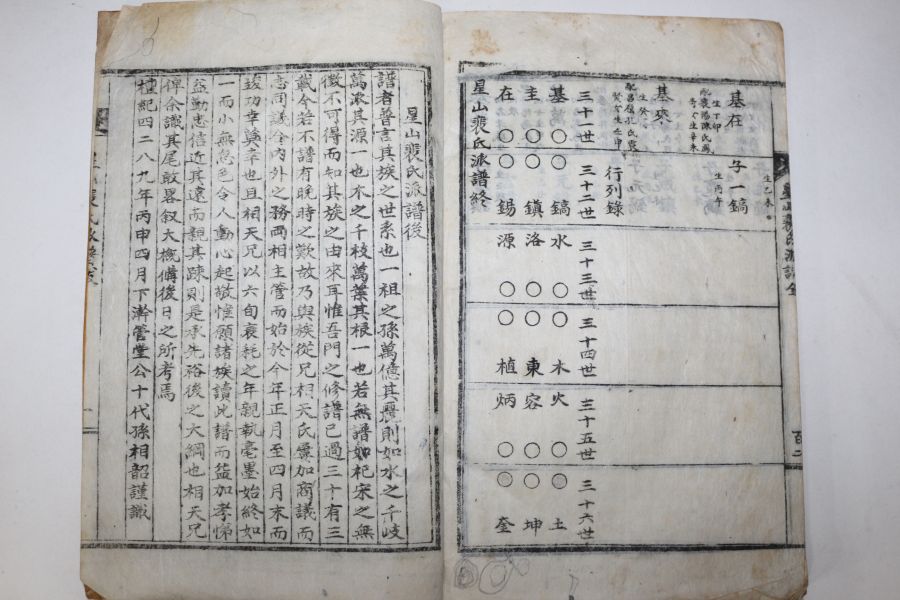 星山裵氏派譜全
百二
基在
生丁卯
子一鎬
生丙午
行列錄
三十一世 三十二世 三十三世 三十四世 三十五世 三十六世
基○ ○鎬 水○ ○木 火○ ○土
主○ ○鎭 洛○ ○東 容○ ○坤
在○ ○錫 源○ ○植 炳○ ○奎
星山裵氏派譜終
星山裵氏派譜後
譜者普言其族之世系也一祖之孫萬億其麗則如水之千岐
萬派其源一也木之千枝萬葉其根一也若無譜如杞宋之無
徵不可得而知其族之由來耳惟吾門之修譜已過三十有三
載今若不譜有晚時之歎故乃與族從兄相天氏屢加商議而
志同議合內外之務兩相主管而始於今年正月至四月末而
竣功幸莫幸也且相天兄以六旬衰耗之年親執毫墨始終如
一而小無怠色令人動心起敬惟願諸族讀此譜而益加孝悌
益勤忠信近其遠而親其疎則是承先裕後之大綱也相天兄
俾余識其尾敢畧叙大槪備後日之所考焉
檀紀四二八九年丙申四月下澣管堂公十代孫相韶謹識